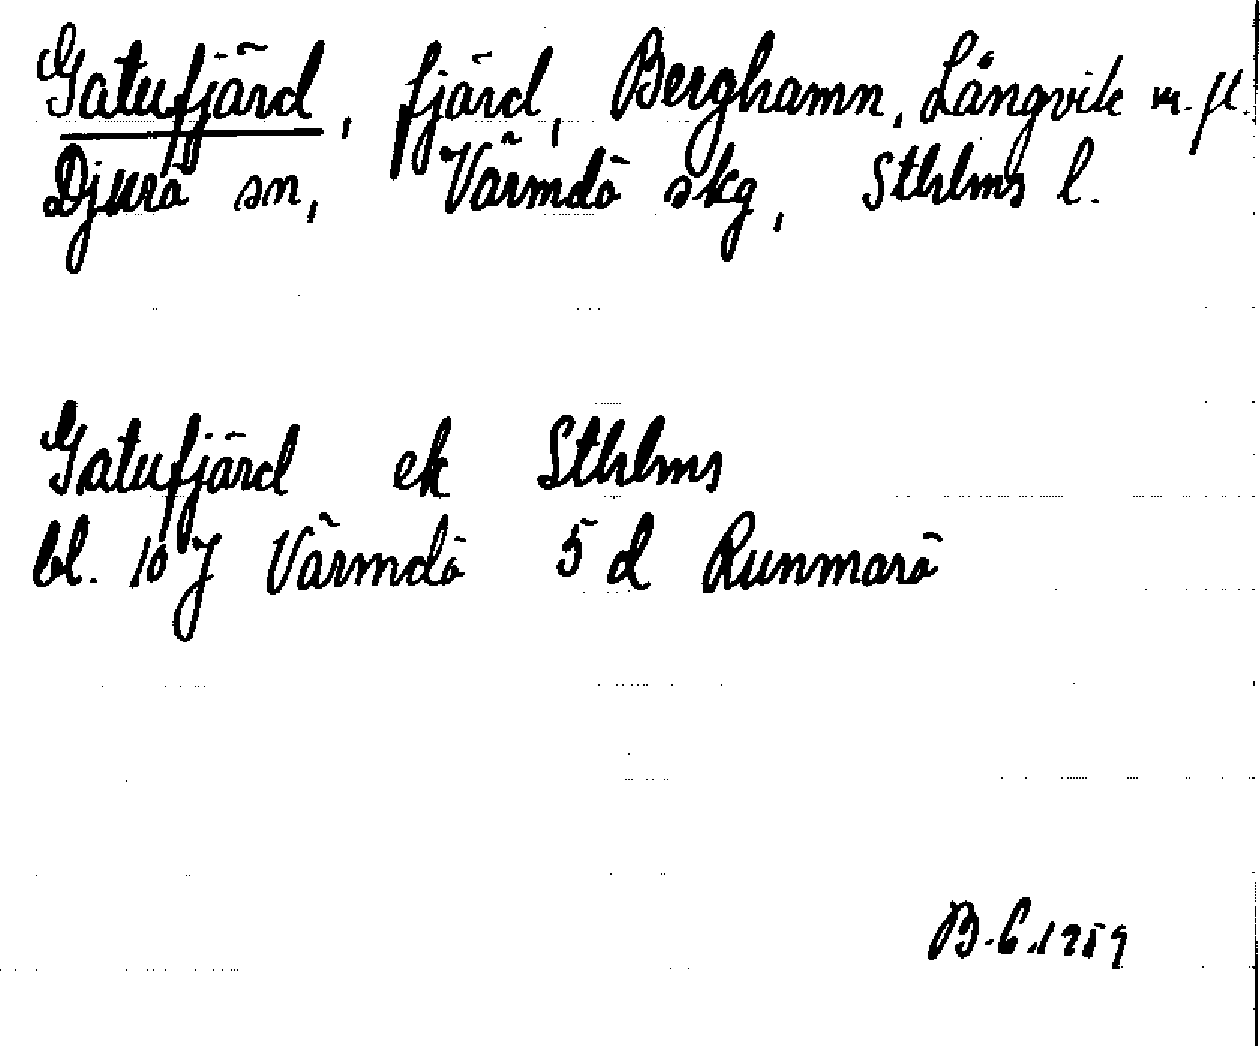 Gatufjärd, fjärd, Berghamn, Långvik m. fl.
Djurö sn, Värmdö skg, Sthlms l.
Gatufjärd ek Sthlms
bl. 10 J Värmdö 5 d Runmarö
B.C. 1959